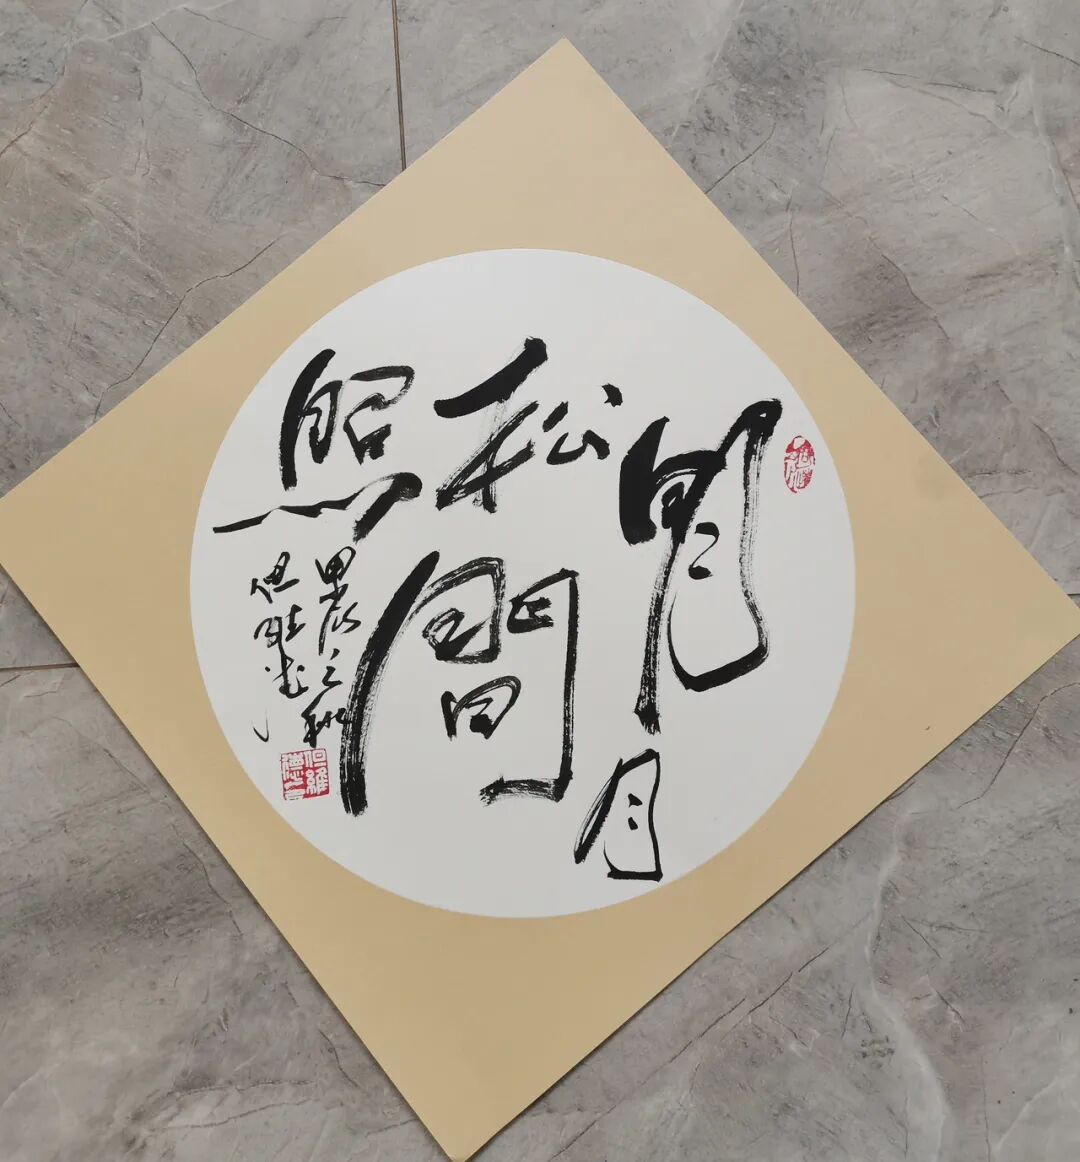 明月
松間
照
甲辰之秋
但維